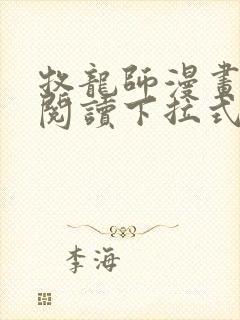 牧龍師漫畫
閱讀下拉式
李海